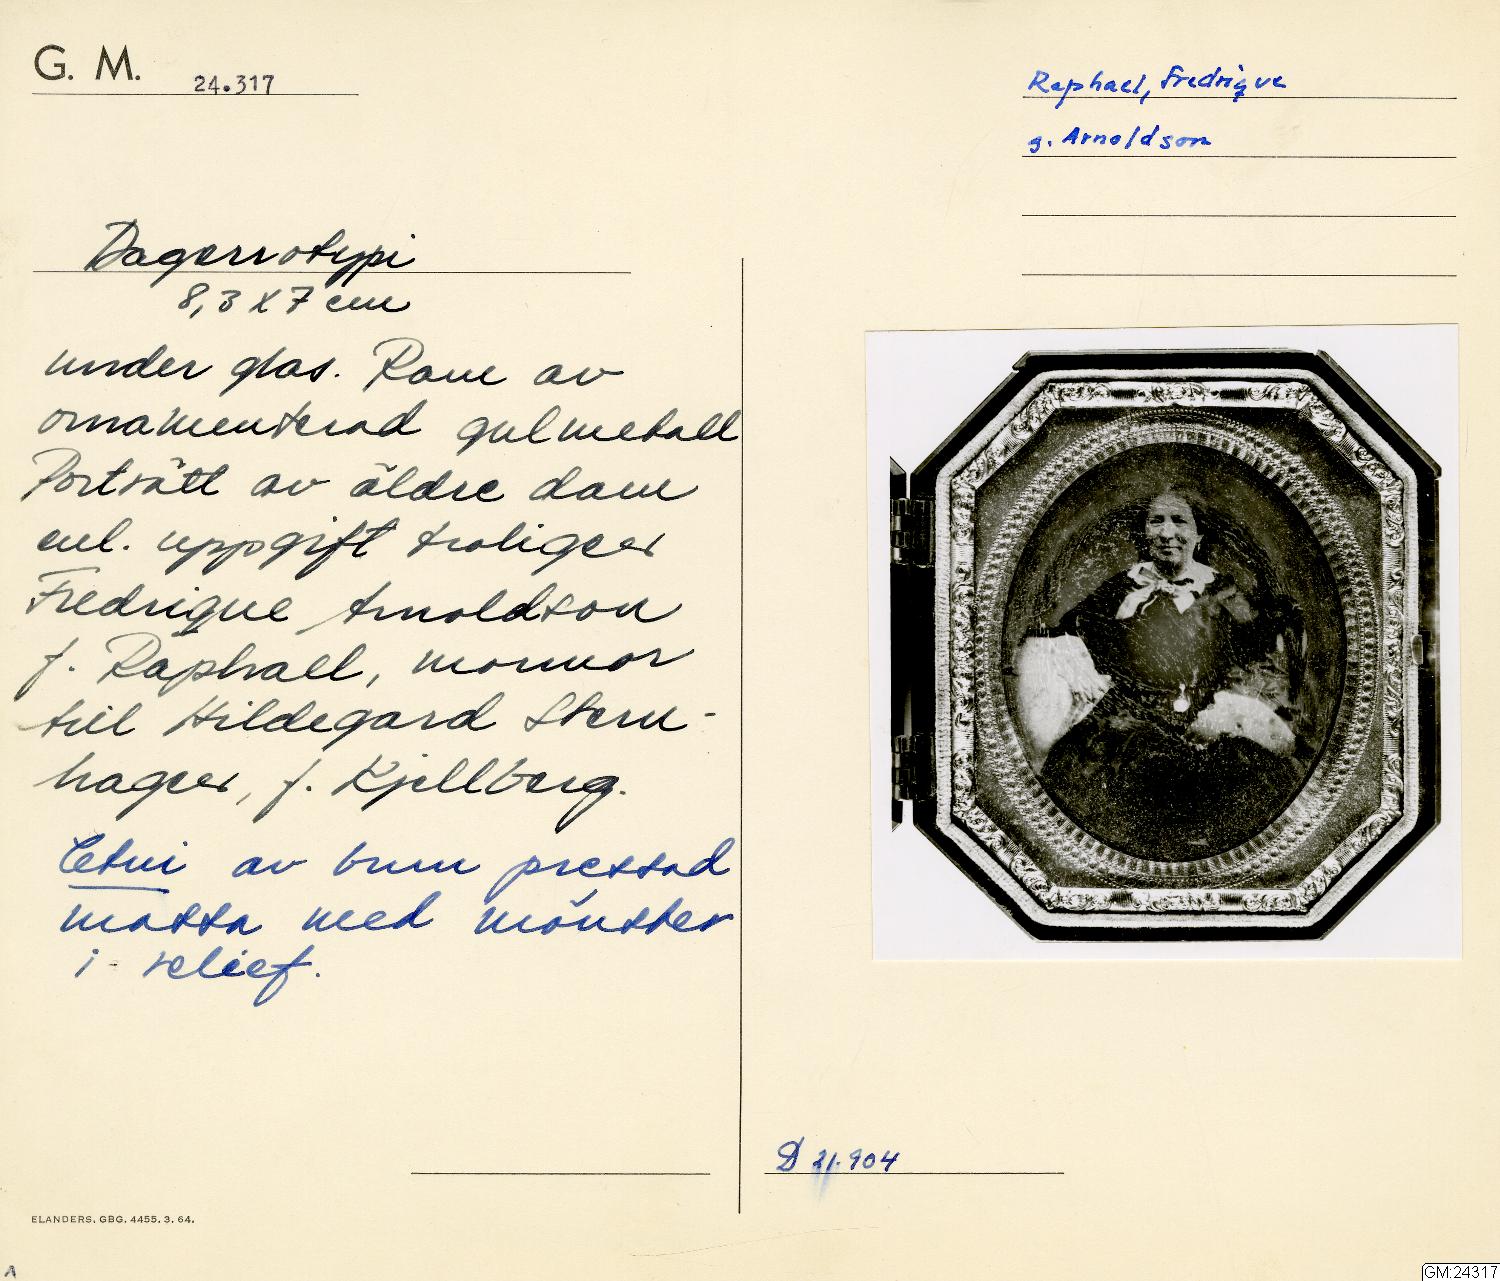 G. M. 24.317
Raphael, Fredrique
g. Arnoldson
Dagerrotypi
8,3 x 7 cm
under glas. Ram av
ornamenterad gulmetall
Porträtt av äldre dam
enl. uppgift troligen
Fredrique Arnoldson
f. Raphael, mormor
till Hildegard Stern-
hagen, f. Kjellberg.
Etui av brun pressad
massa med mönster
i relief.
D 21.904
ELANDERS. GBG. 4455. 3. 64.
A
GM:24317